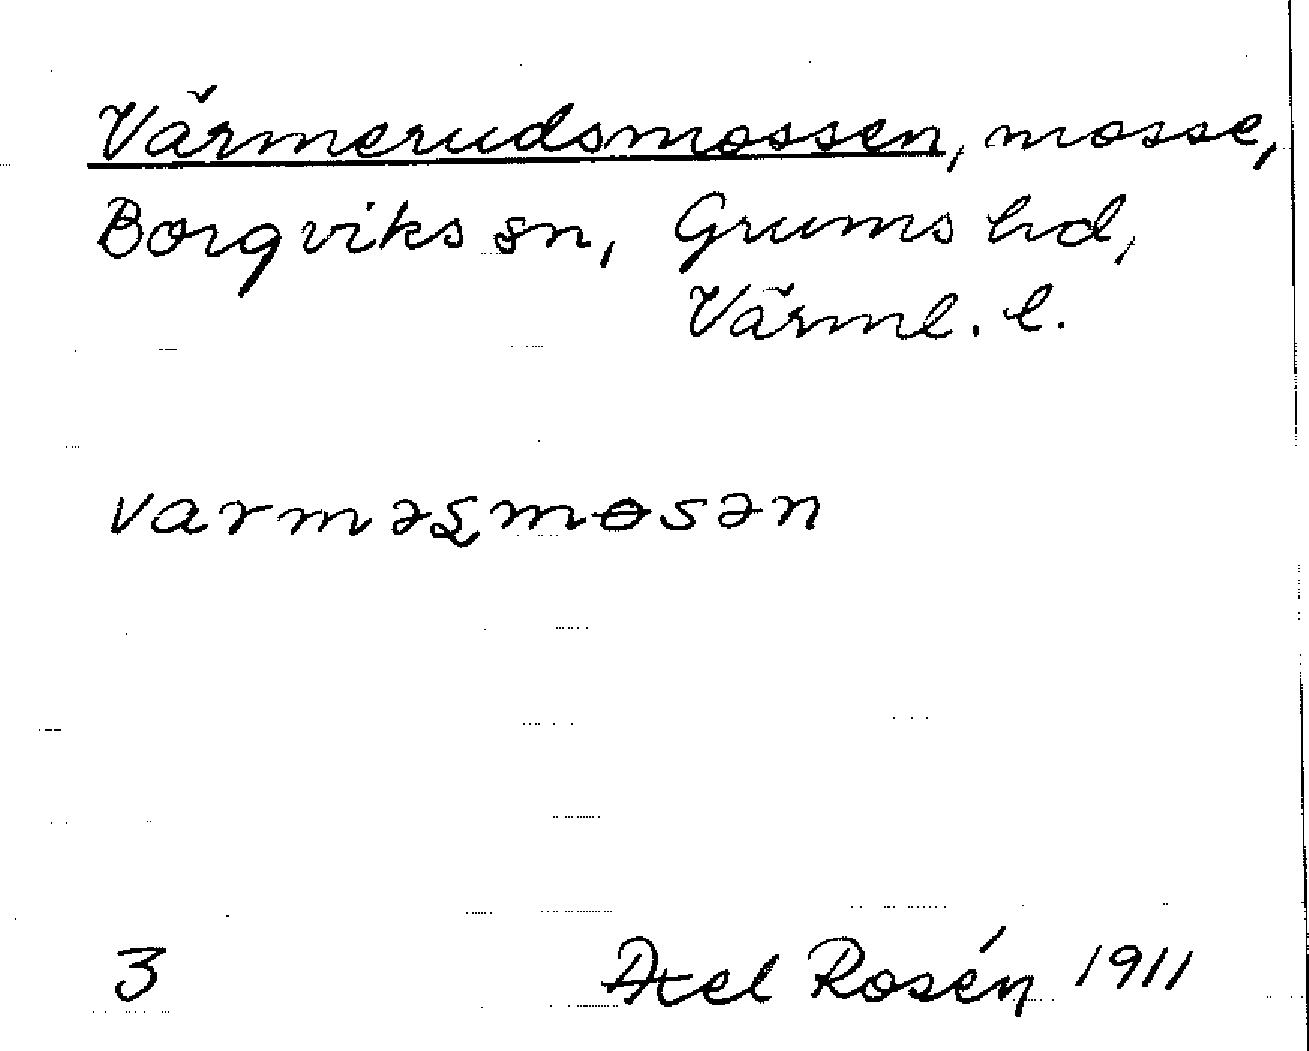 Värmerudsmossen, mosse,
Borgviks sn, Grums hd,
Värml. l.
varməʂmɵsən
3 Axel Rosén 1911